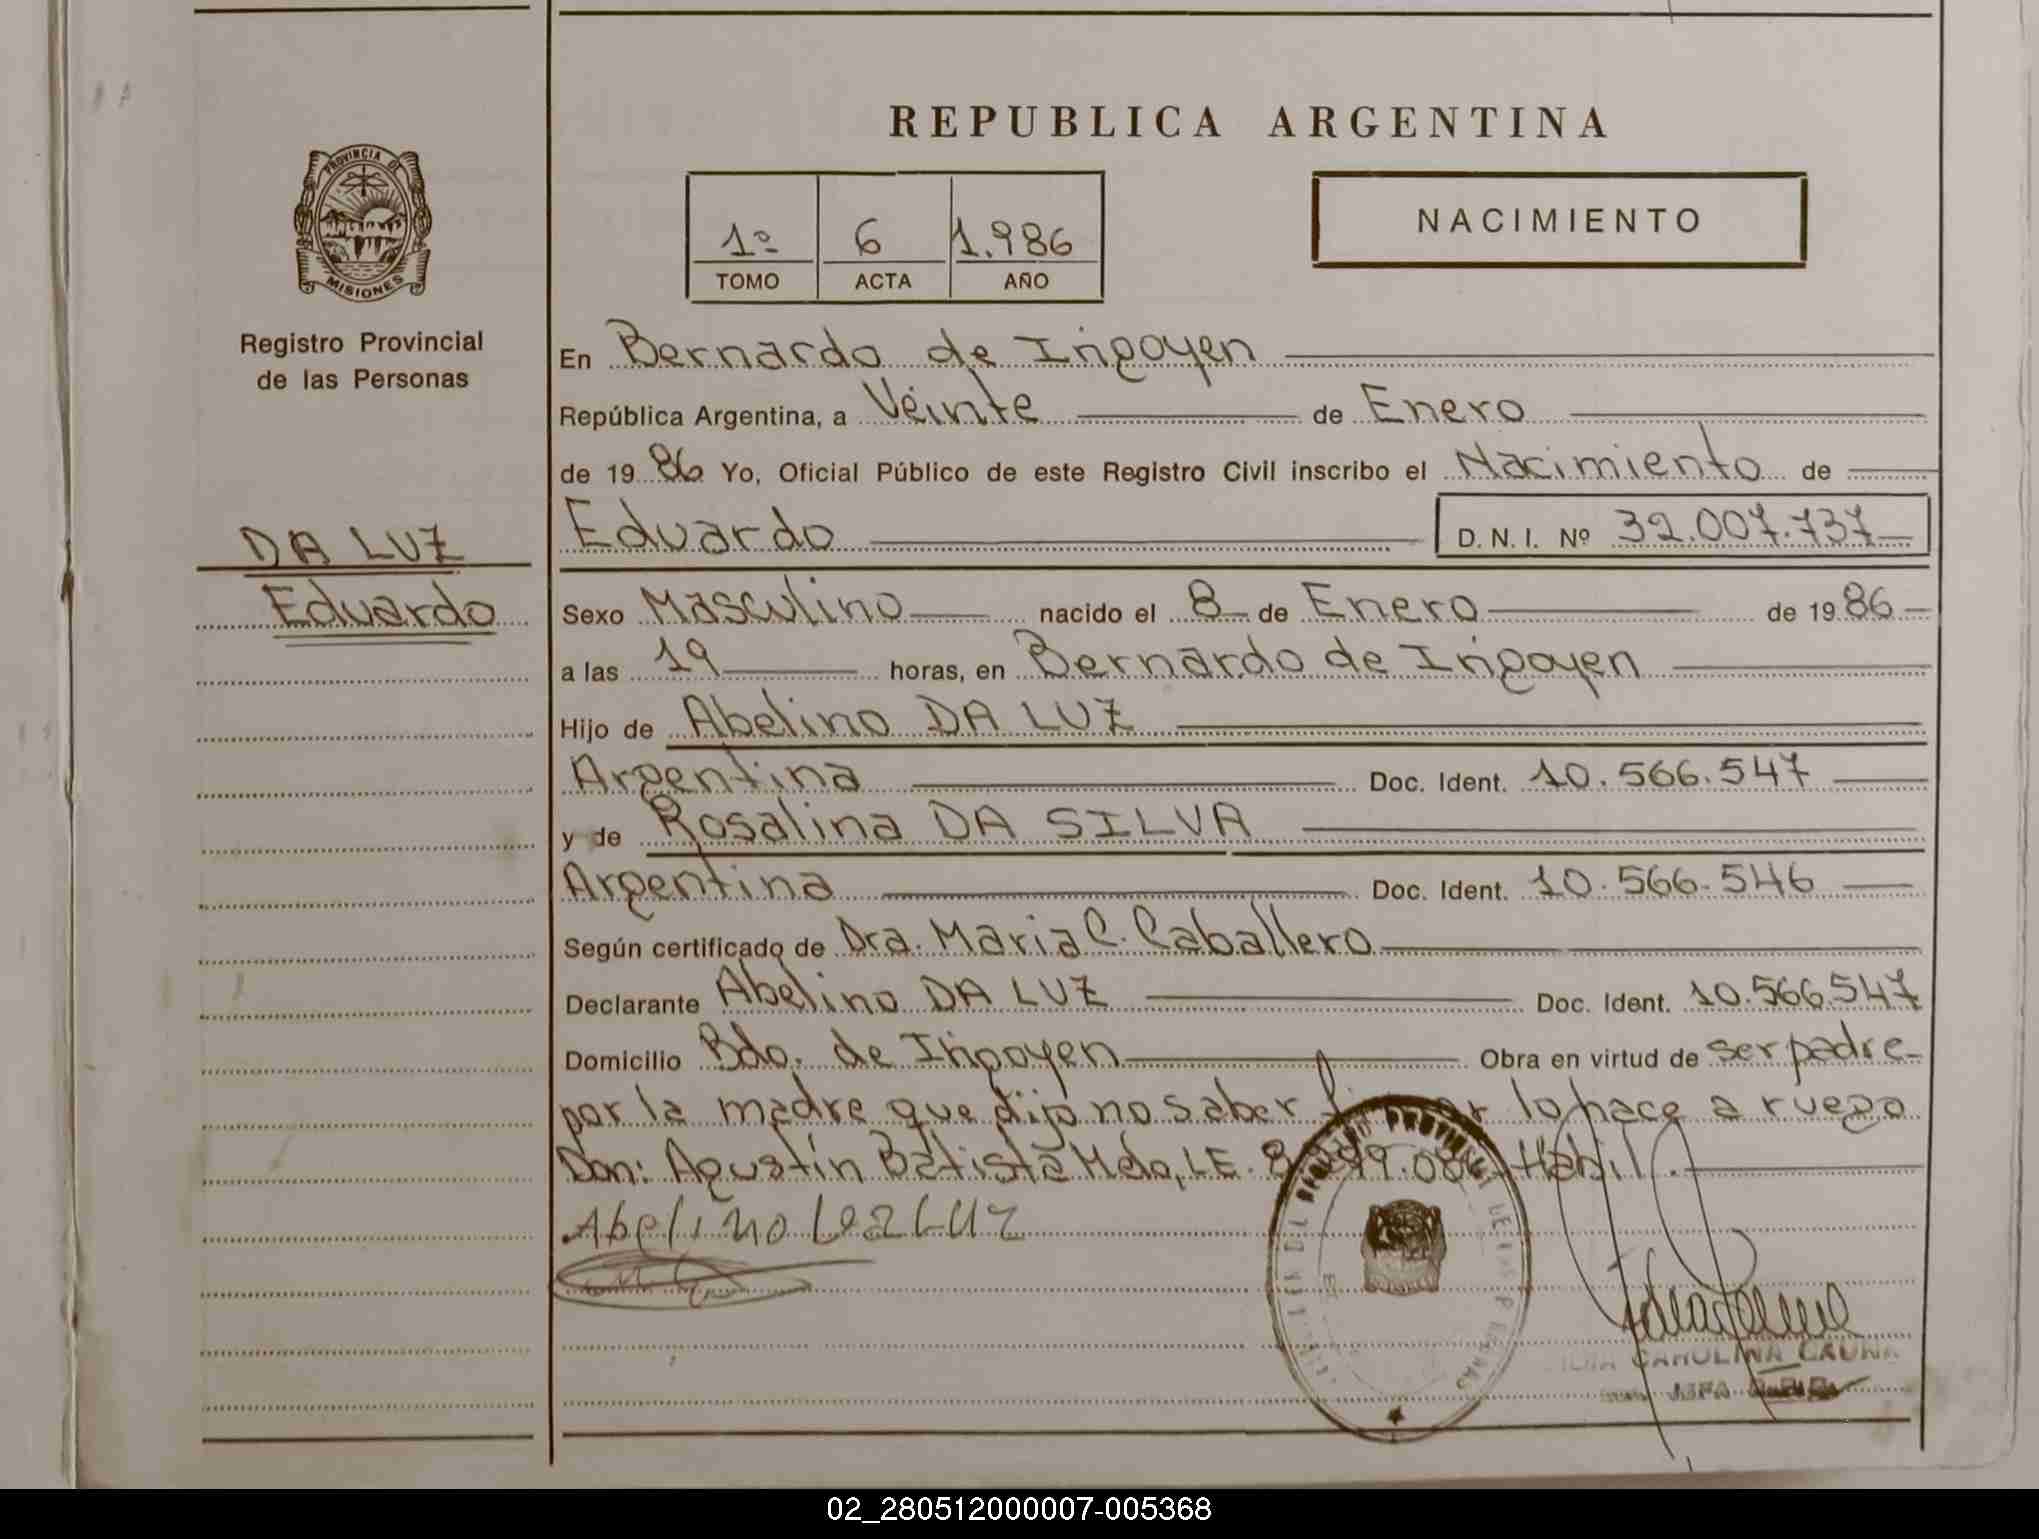 REPUBLICA ARGENTINA
PROVINCIA DE
MISIONES
Registro Provincial
de las Personas
1º 6 1.986
TOMO ACTA AÑO
NACIMIENTO
En Bernardo de Irigoyen
República Argentina, a Veinte de Enero
de 19 86 Yo, Oficial Público de este Registro Civil inscribo el Nacimiento de
Eduardo D. N. I. Nº 32.007.737
DA LUZ
Eduardo
Sexo Masculino nacido el 8 de Enero de 19 86
a las 19 horas, en Bernardo de Irigoyen
Hijo de Abelino DA LUZ
Argentina Doc. Ident. 10.566.547
y de Rosalina DA SILVA
Argentina Doc. Ident. 10.566.546
Según certificado de Dra. Maria C. Caballero
Declarante Abelino DA LUZ Doc. Ident. 10.566.547
Domicilio Bdo. de Irigoyen Obra en virtud de ser padre
por la madre que dijo no saber lo hace a ruego
Don: Agustín Batista Mdo, L.E. Hábil.
Abelino
CAROLINA
JEFA
02_280512000007-005368